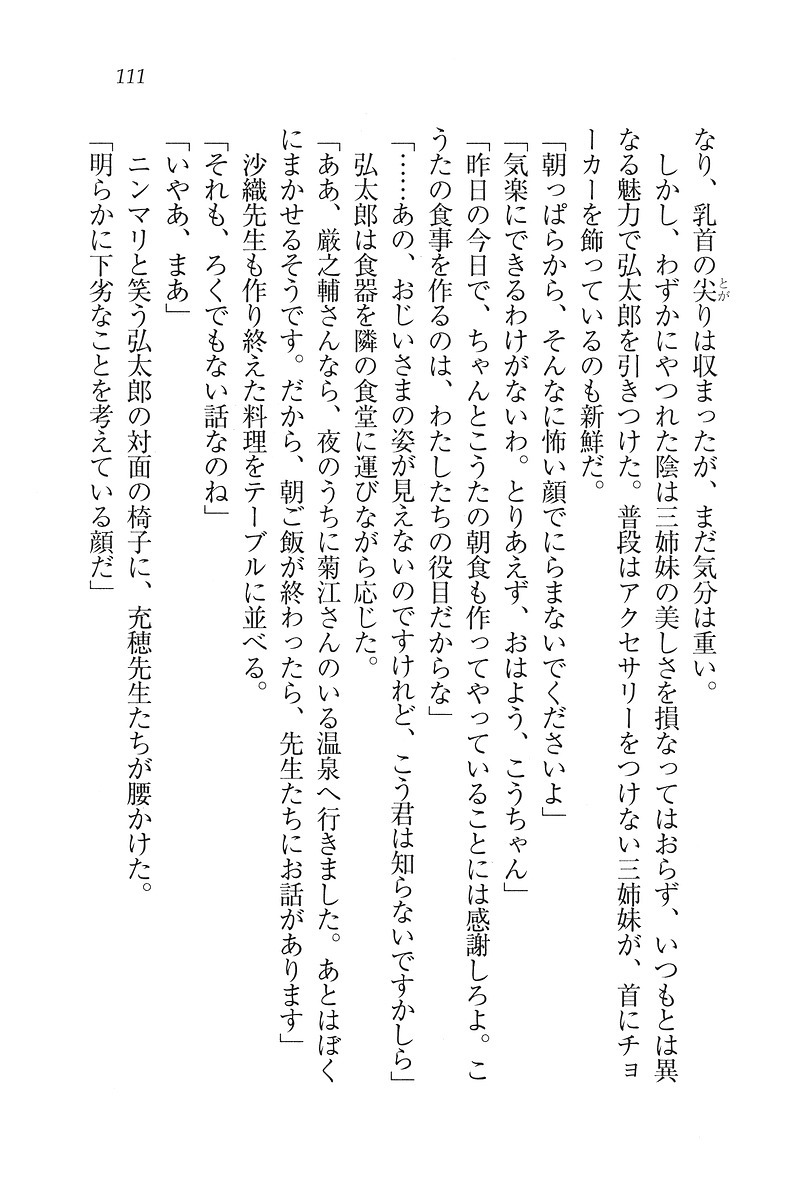 111
なり、乳首の尖りは収まったが、まだ気分は重い。
しかし、わずかにやつれた陰は三姉妹の美しさを損なってはおらず、いつもとは異
なる魅力で弘太郎を引きつけた。普段はアクセサリーをつけない三姉妹が、首にチョ
ーカーを飾っているのも新鮮だ。
「朝っぱらから、そんなに怖い顔でにらまないでくださいよ」
「気楽にできるわけがないわ。とりあえず、おはよう、こうちゃん」
「昨日の今日で、ちゃんとこうたの朝食も作ってやっていることには感謝しろよ。こ
うたの食事を作るのは、わたしたちの役目だからな」
「……あの、おじいさまの姿が見えないのですけれど、こう君は知らないですかしら」
弘太郎は食器を隣の食堂に運びながら応じた。
「ああ、厳之輔さんなら、夜のうちに菊江さんのいる温泉へ行きました。あとはぼく
にまかせるそうです。だから、朝ご飯が終わったら、先生たちにお話があります」
沙織先生も作り終えた料理をテーブルに並べる。
「それも、ろくでもない話なのね」
「いやあ、まあ」
ニンマリと笑う弘太郎の対面の椅子に、充穂先生たちが腰かけた。
「明らかに下劣なことを考えている顔だ」